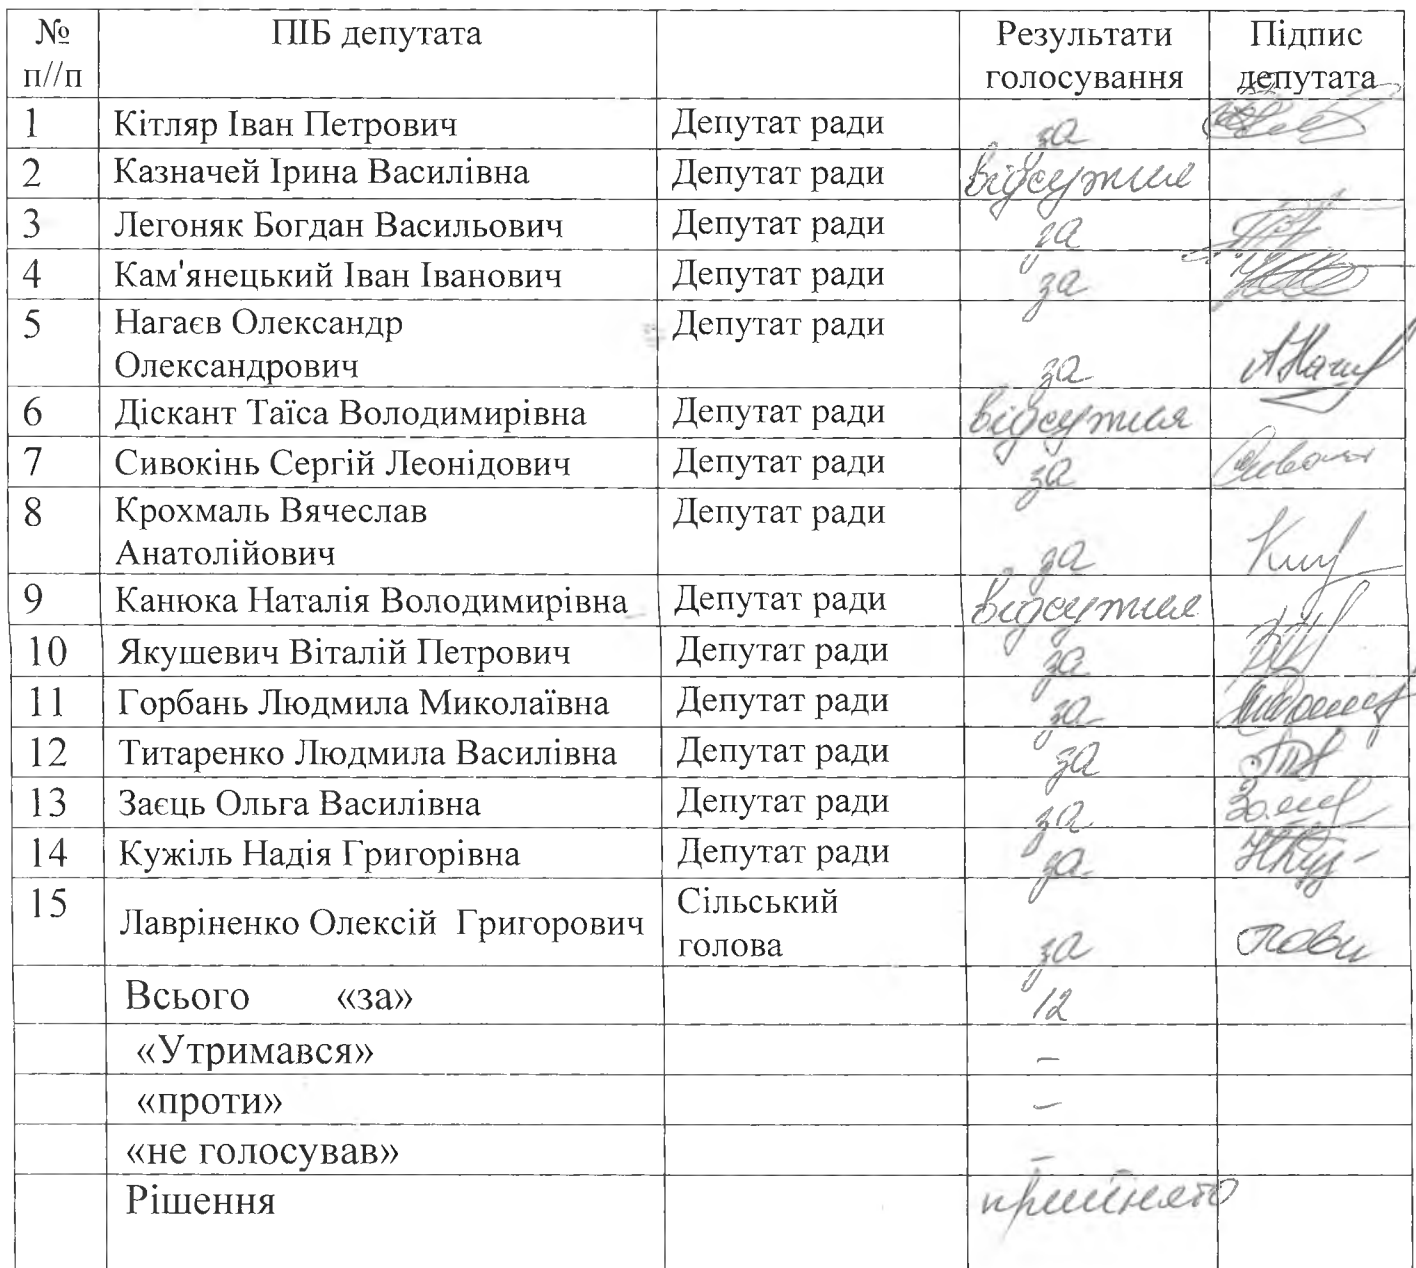 № ПІБ депутата Результати Підпис
п//п голосування депутата
1 Кітляр Іван Петрович Депутат ради за
2 Казначей Ірина Василівна Депутат ради відсутня
3 Легоняк Богдан Васильович Депутат ради за
4 Кам'янецький Іван Іванович Депутат ради за
5 Нагаєв Олександр Депутат ради
Олександрович за
6 Діскант Таїса Володимирівна Депутат ради відсутня
7 Сивокінь Сергій Леонідович Депутат ради за
8 Крохмаль Вячеслав Депутат ради
Анатолійович за
9 Канюка Наталія Володимирівна Депутат ради відсутня
10 Якушевич Віталій Петрович Депутат ради за
11 Горбань Людмила Миколаївна Депутат ради за
12 Титаренко Людмила Василівна Депутат ради за
13 Заєць Ольга Василівна Депутат ради за
14 Кужіль Надія Григорівна Депутат ради за
15 Лавріненко Олексій Григорович Сільський
голова за
Всього «за» 12
«Утримався» –
«проти» –
«не голосував» –
Рішення прийнято